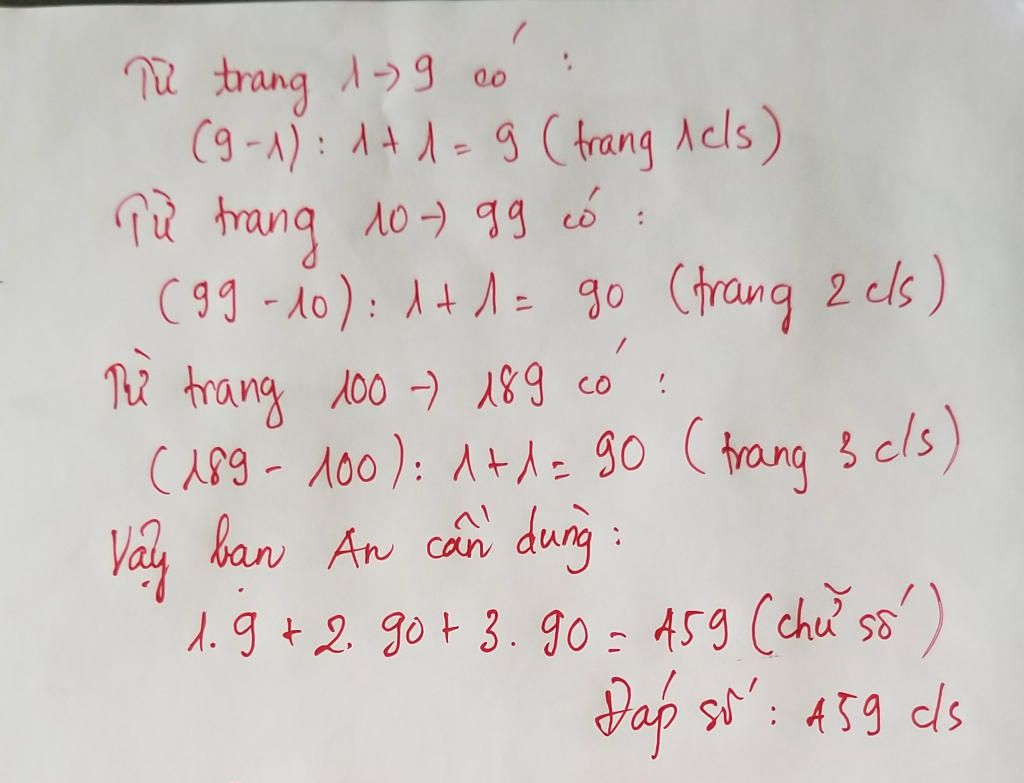 Từ trang 1→9 có :
(9-1) : 1 + 1 = 9 (trang 1 c/s)
Từ trang 10→ 99 có :
(99 - 10) : 1 + 1 = 90 (trang 2 c/s)
Từ trang 100 → 189 có :
(189 - 100) : 1 + 1 = 90 (trang 3 c/s)
Vậy bạn An cần dùng :
1. 9 + 2. 90 + 3. 90 = 459 (chữ số)
Đáp số : 459 c/s